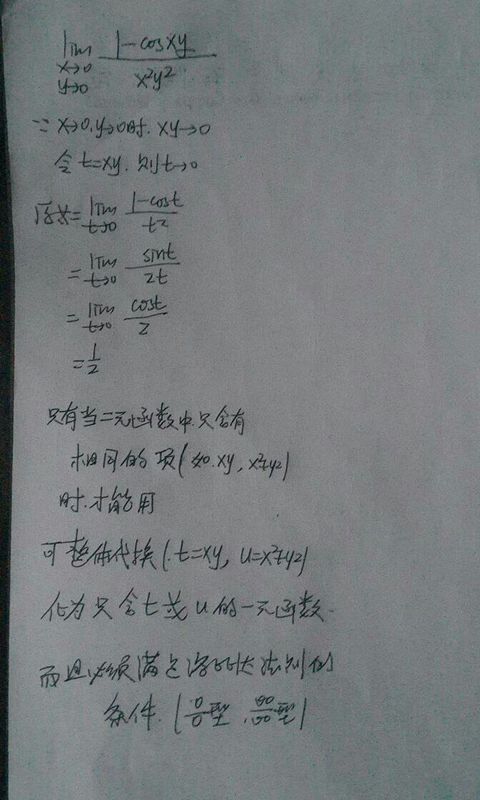 lim 1-cosxy
x→0
y→0 x²y²
∵ x→0, y→0时. xy→0
令t=xy. 则t→0
原式= lim 1-cost
t→0 t²
= lim sint
t→0 2t
= lim cost
t→0 2
= 1
2
只有当二元函数中.只含有
相同的项(如.xy, x²+y²)
时.才能用
可整体代换(.t=xy, u=x²+y²)
化为只含t或u的一元函数.
而且必须满足洛必达法则的
条件. (0/0型, ∞/∞型)